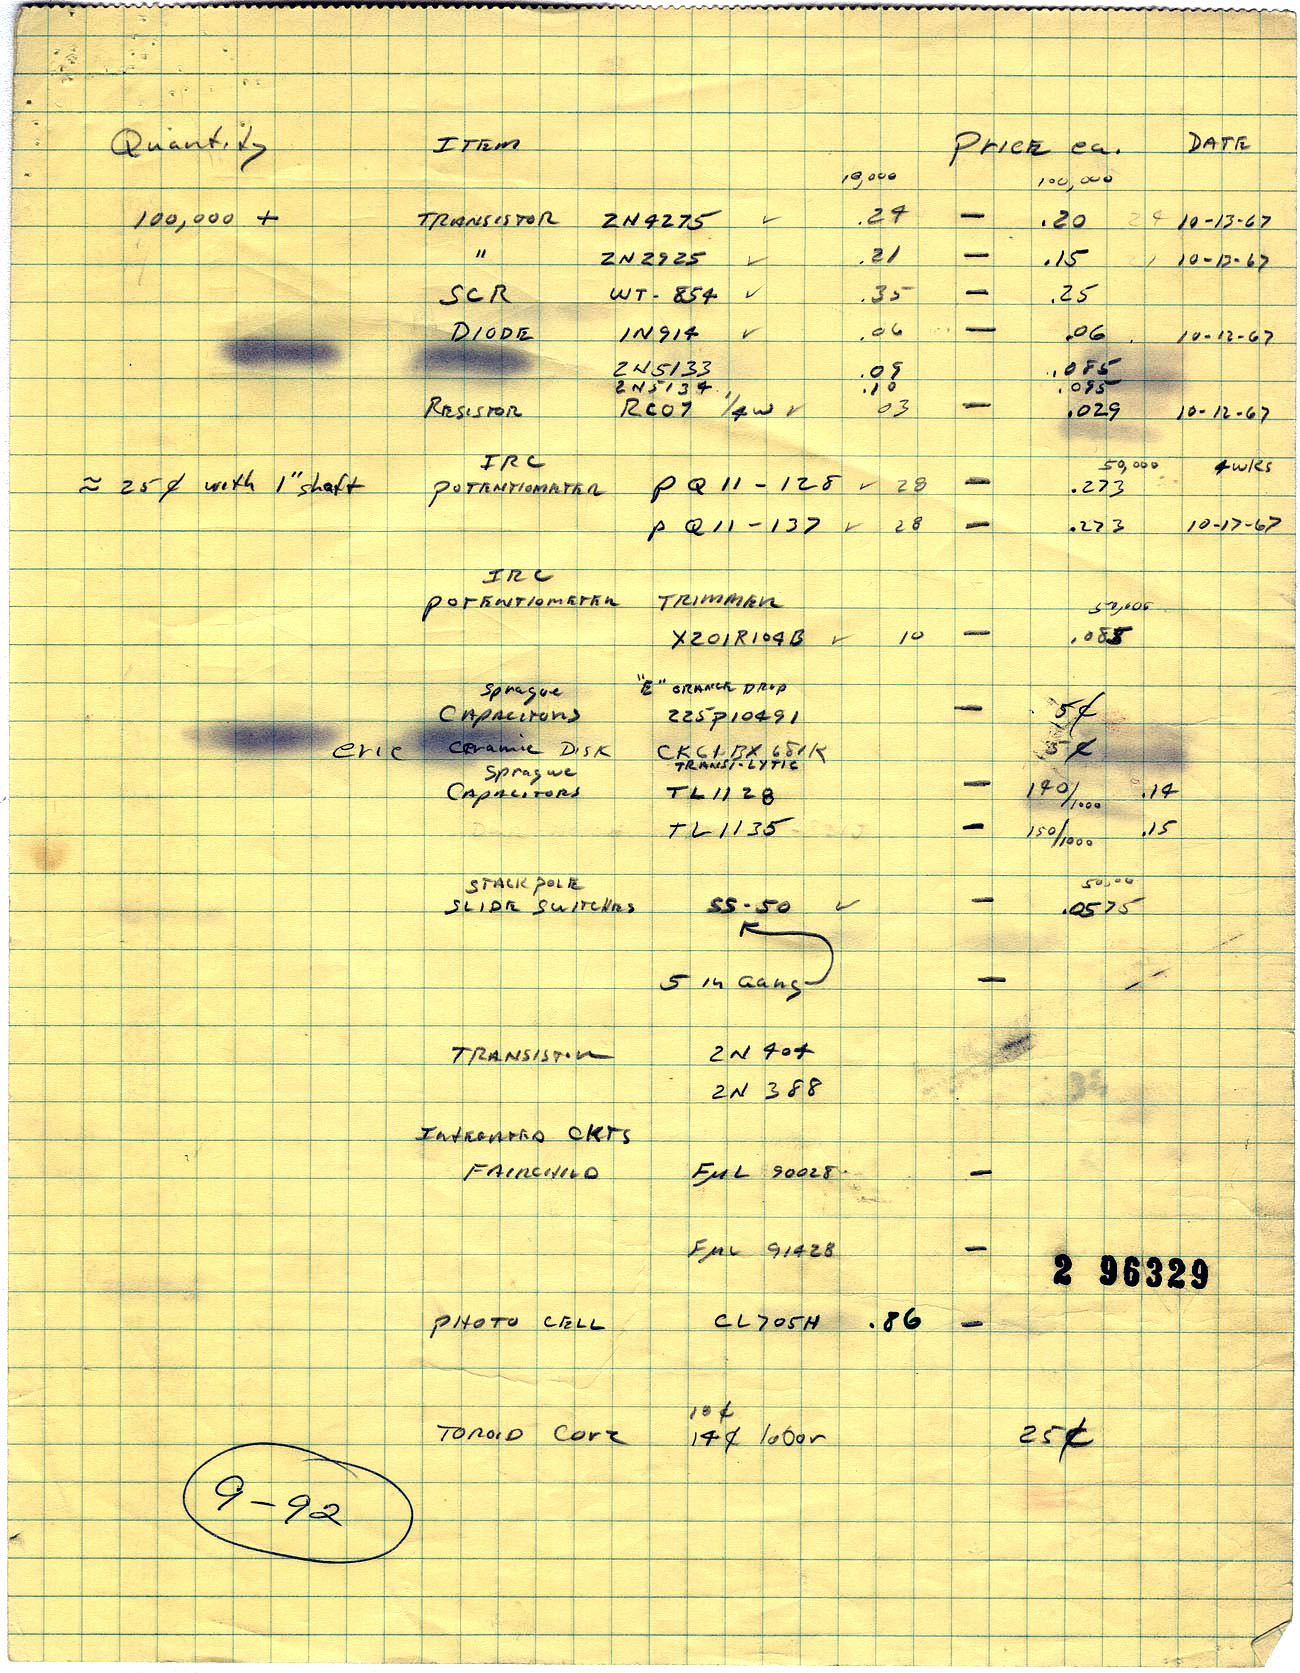 Quantity ITEM Price ea. DATE
10,000 100,000
100,000 + TRANSISTOR 2N4275 ✓ .24 — .20 24 10-13-67
" 2N2925 ✓ .21 — .15 10-13-67
SCR WT-854 ✓ .35 — .25
DIODE 1N914 ✓ .06 — .06 10-12-67
2N5133 .09 .085
2N5134 .10 .095
RESISTOR RC07 1/4W ✓ 03 — .029 10-12-67
IRC 50,000 4wks
≈ 25¢ with 1" shaft POTENTIOMETER PQ11-128 ✓ 28 — .273
PQ11-137 ✓ 28 — .273 10-17-67
IRC
POTENTIOMETER TRIMMER 50,000
X201R104B ✓ 10 — .085
Sprague "E" ORANGE DROP
CAPACITORS 225P10491 — 5¢
eric Ceramic DISK CK61BX 681K 5¢
Sprague TRANSI-LYTIC
CAPACITORS TL1128 — 140/1000 .14
TL1135 — 150/1000 .15
STACKPOLE
SLIDE SWITCHES SS-50 ✓ — .0575
5 in Gang —
TRANSISTOR 2N404
2N388
INTEGRATED CKTS
FAIRCHILD FμL 90028 —
FμL 91428 —
2 96329
PHOTO CELL CL705H .86 —
10¢
TOROID Core 14¢ labor 25¢
9-92